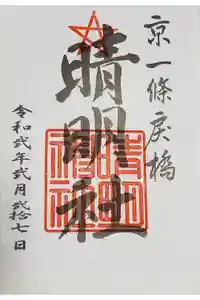 京一條戻橋
晴明社
晴明神社
令和弐年弐月弐拾七日